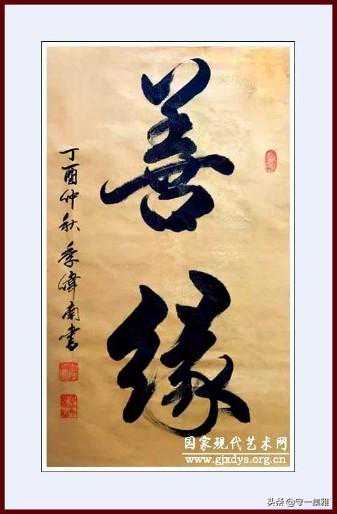 善缘
丁酉仲秋 季 南书
国家现代艺术网
www.gjxdys.org.cn
头条 @守一集雅